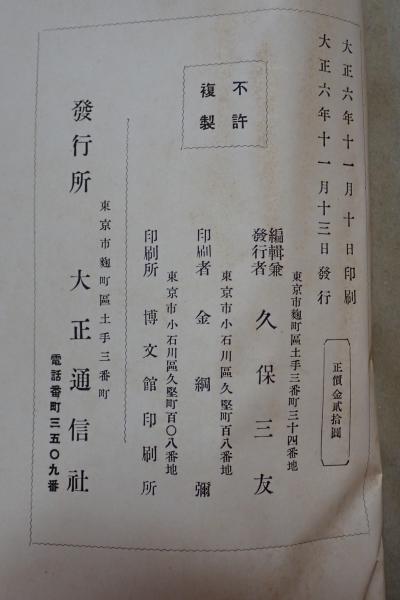 大正六年十一月十日印刷
大正六年十一月十三日發行
正價金貳拾圓
不許
複製
東京市麹町區土手三番町三十四番地
編輯兼
發行者 久保三友
東京市小石川區久堅町百八番地
印刷者 金綱彌
東京市小石川區久堅町百〇八番地
印刷所 博文館印刷所
東京市麹町區土手三番町
發行所 大正通信社
電話番町三五〇九番